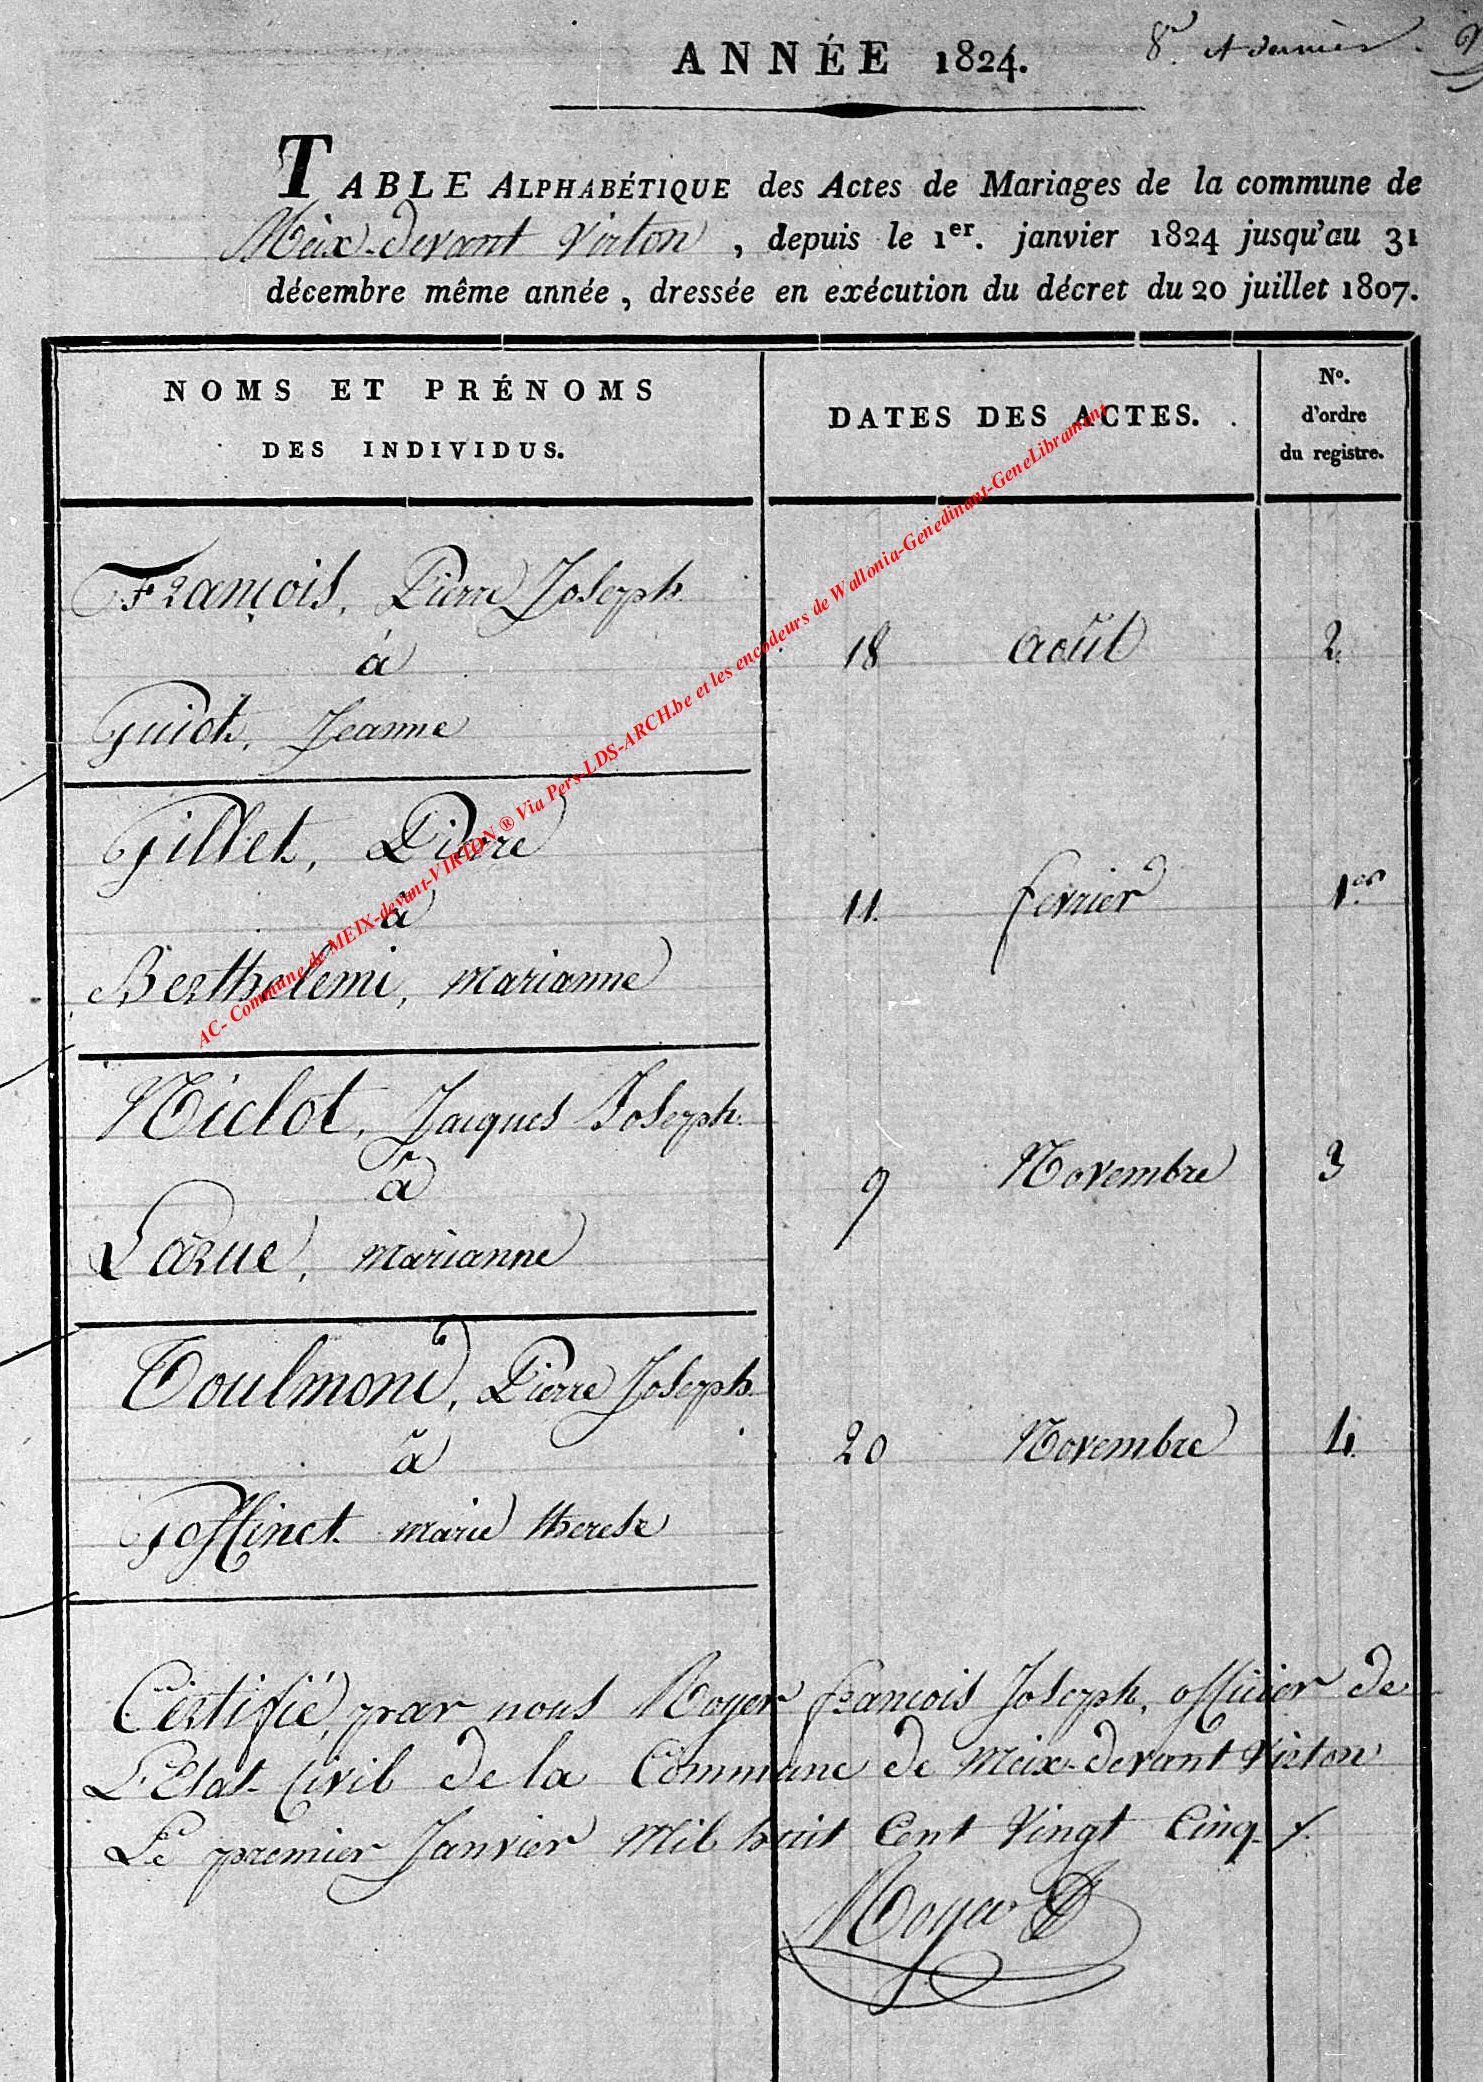 ANNÉE 1824.
8e et dernier.
TABLE ALPHABÉTIQUE des Actes de Mariages de la commune de
Meix-devant Virton, depuis le 1er. janvier 1824 jusqu'au 31
décembre même année, dressée en exécution du décret du 20 juillet 1807.
NOMS ET PRÉNOMS
DES INDIVIDUS.
DATES DES ACTES.
No.
d'ordre
du registre.
François, Pierre Joseph
à
18 Août 2.
Guiot, Jeanne
Gillet, Pierre
à
11. février 1er
Berthelemi, marianne
Niclot, Jacques Joseph
à
9 Novembre 3
Larue, marianne
Toulmond, Pierre Joseph
à
20 Novembre 4.
Goffinet marie therese
Certifié, par nous Noyer françois Joseph, officier de
L'Etat-Civil de la Commune de Meix-devant Virton
Le premier Janvier Mil huit Cent Vingt Cinq
Noyer
AC- Commune de MEIX-devant-VIRTON ® Via Pers-LDS-ARCH.be et les encodeurs de Wallonia-Genedinant-GeneLibramont